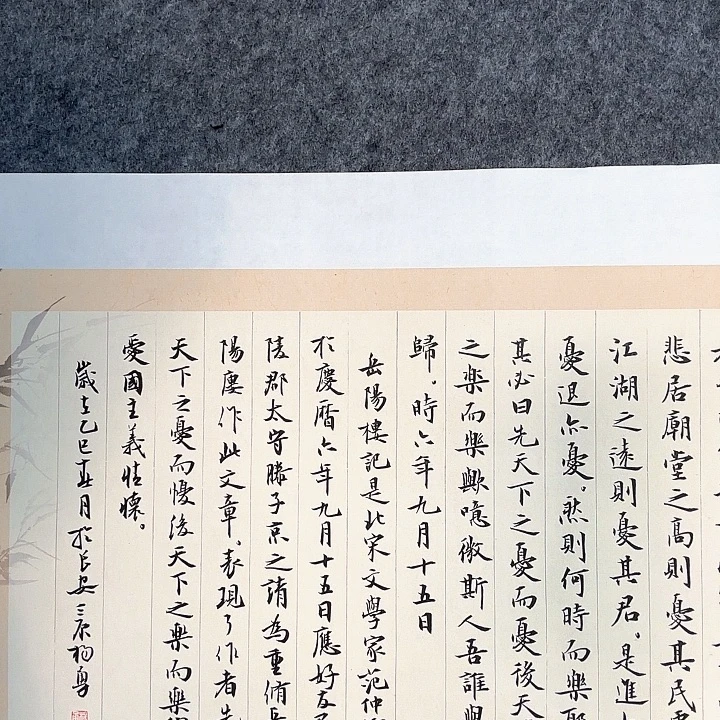 悲居廟堂之高則憂其民
江湖之遠則憂其君。是進
憂退亦憂。然則何時而樂耶
其必曰先天下之憂而憂後天
之樂而樂歟噫微斯人吾誰與
歸。時六年九月十五日
岳陽樓記是北宋文學家范仲
於慶曆六年九月十五日應好友
陵郡太守滕子京之請為重脩岳
陽廔作此文章。表現了作者先
天下之憂而憂後天下之樂而樂
愛國主義情懷。
歲在乙巳春月於長安